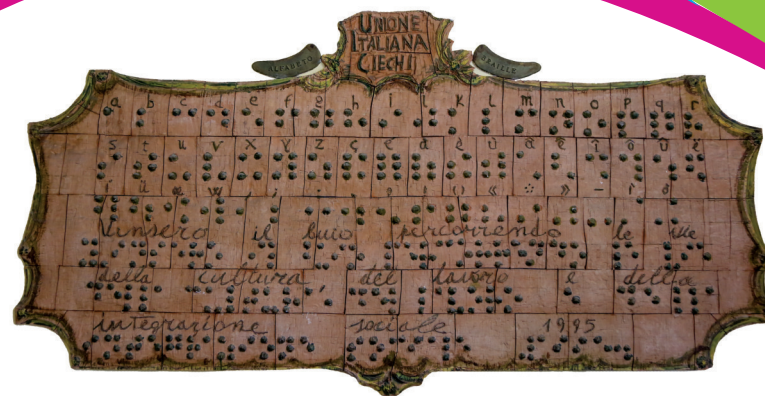 UNIONE
ITALIANA
CIECHI
ALFABETO BRAILLE
a b c d e f g h i j k l m n o p q r
s t u v x y z ç é à è ù â ê î ô û ë
ï ü œ w , ; : . ? ! () « * » – ì ò
Vinsero il buio percorrendo le vie
della cultura, del lavoro e della
integrazione sociale 1995